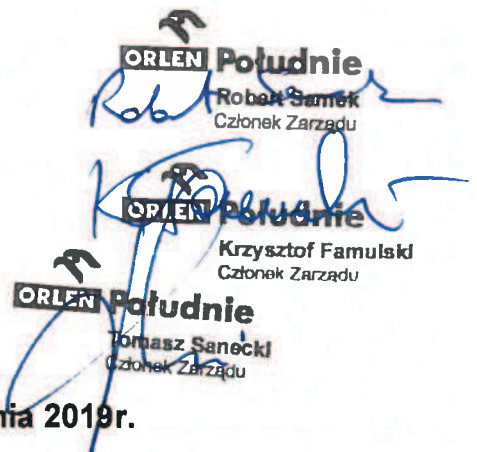 ORLEN Południe
Robert Samek
Członek Zarządu
ORLEN Południe
Krzysztof Famulski
Członek Zarządu
ORLEN Południe
Tomasz Sanecki
Członek Zarządu
2019r.